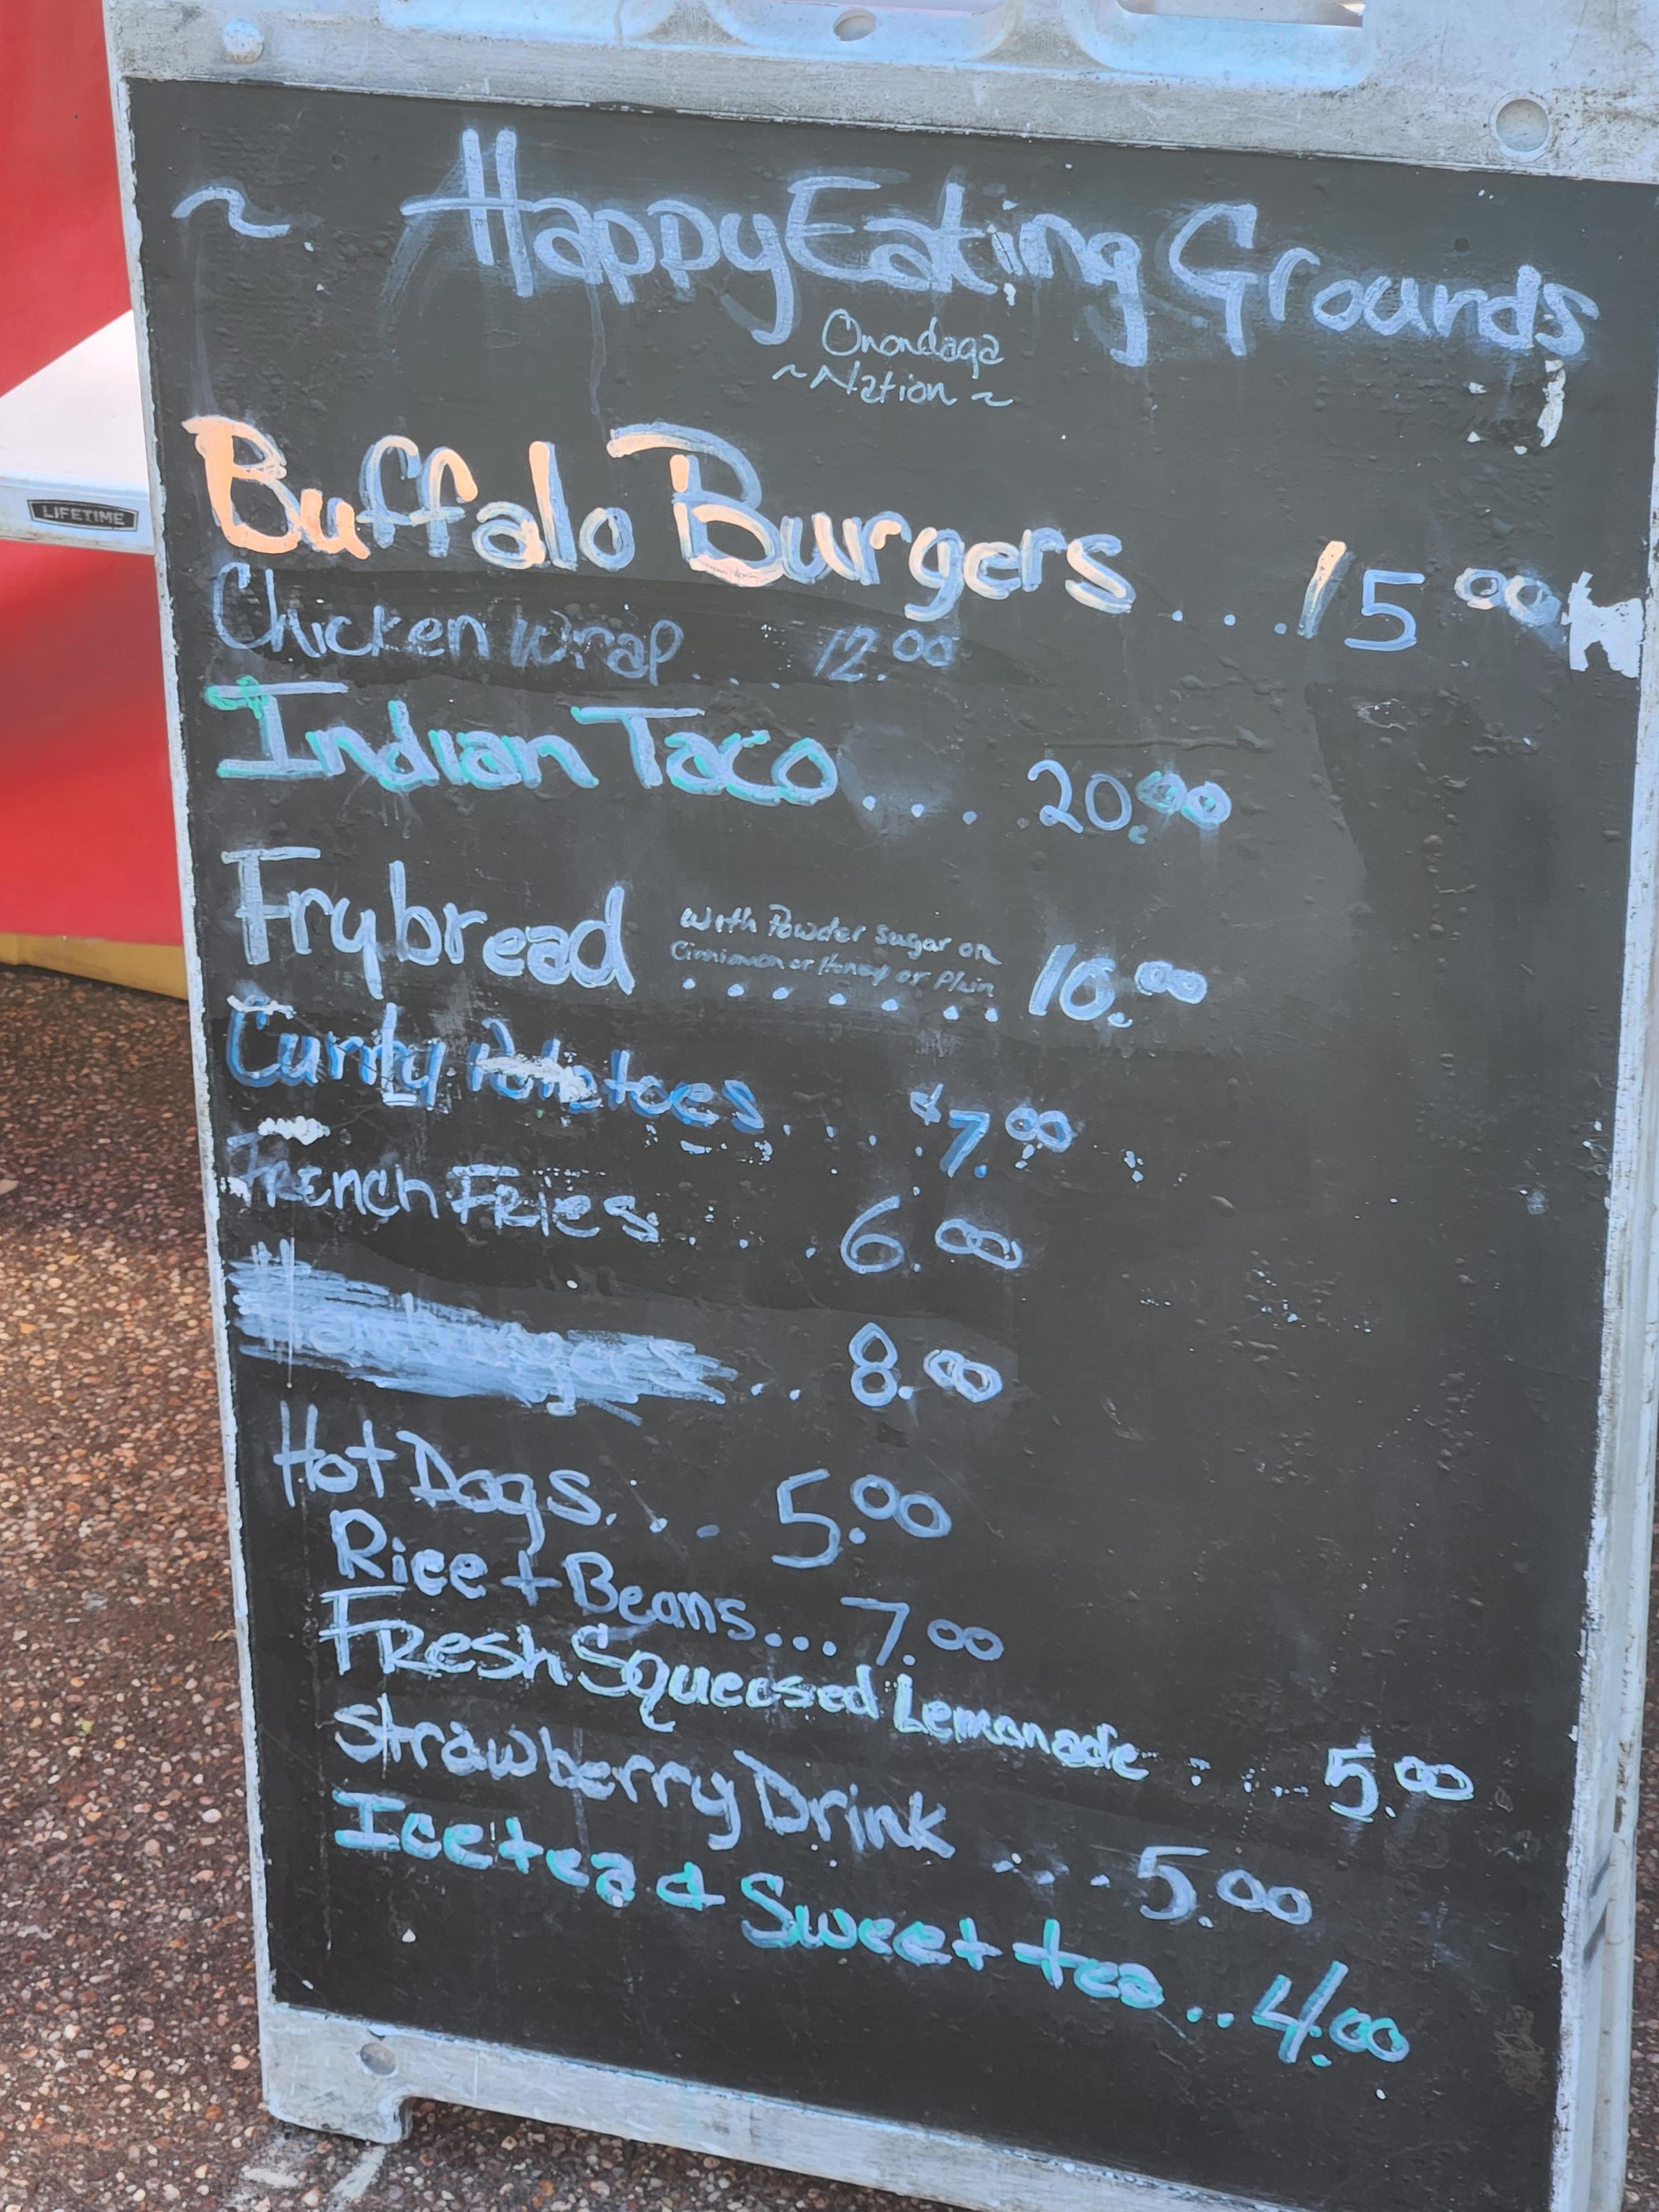 ~ Happy Eating Grounds
Onondaga
~ Nation ~
LIFETIME
Buffalo Burgers ... 15.00
Chicken Wrap .... 12.00
Indian Taco .... 20.00
Frybread with Powder Sugar or
Cinnimon or Honey or Plain
........ 10.00
Curly Potatoes .... $7.00
French Fries .... 6.00
Hamburgers .. 8.00
Hot Dogs... . 5.00
Rice + Beans... 7.00
Fresh Squeesed Lemonade .... 5.00
Strawberry Drink .... 5.00
Icetea & Sweet tea .. 4.00